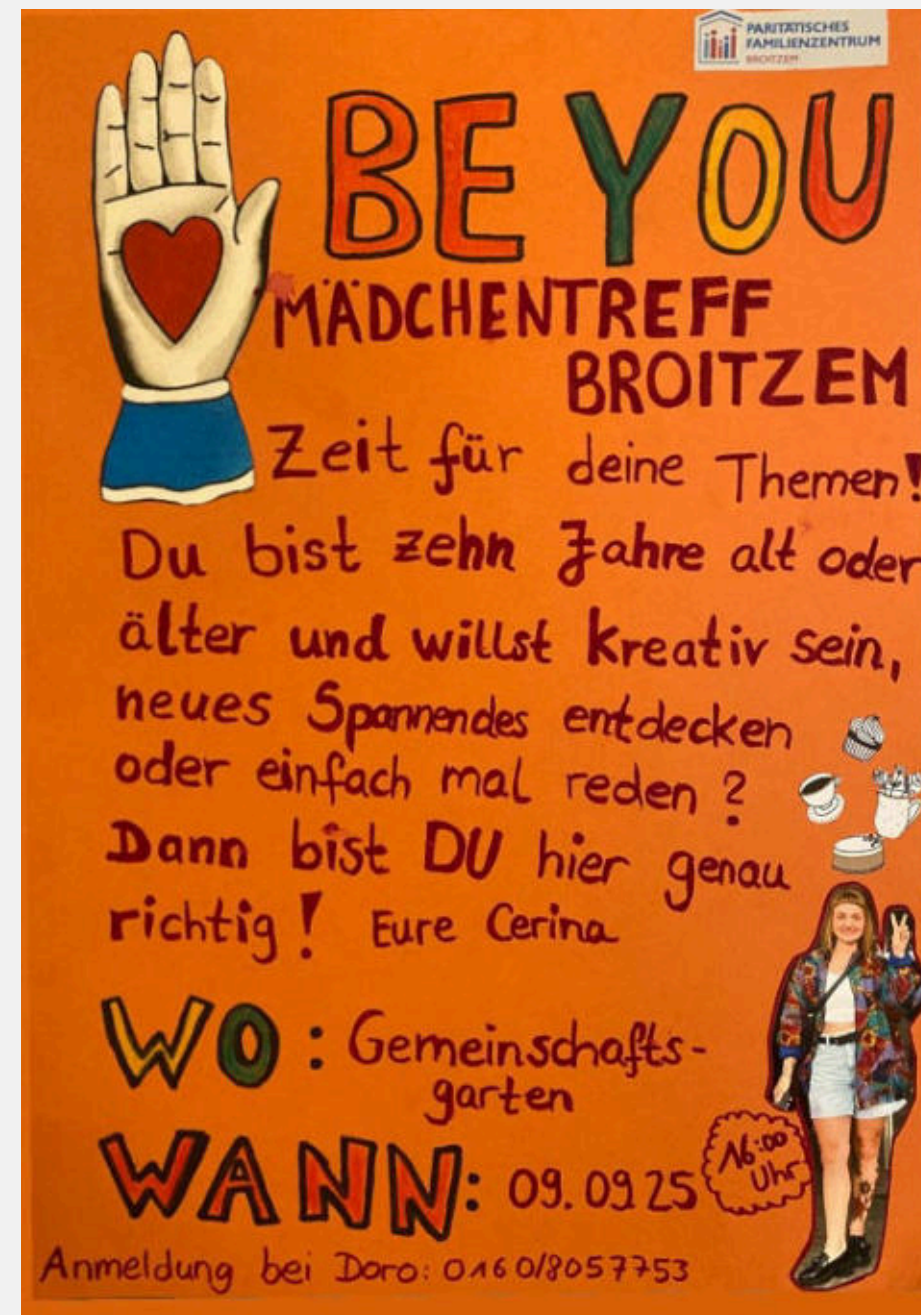 PARITÄTISCHES
FAMILIENZENTRUM
BROITZEM
BE YOU
MÄDCHENTREFF
BROITZEM
Zeit für deine Themen!
Du bist zehn Jahre alt oder
älter und willst kreativ sein,
neues Spannendes entdecken
oder einfach mal reden?
Dann bist DU hier genau
richtig! Eure Cerina
WO: Gemeinschafts-
garten
WANN: 09.09.25
16:00
Uhr
Anmeldung bei Doro: 0160/8057753